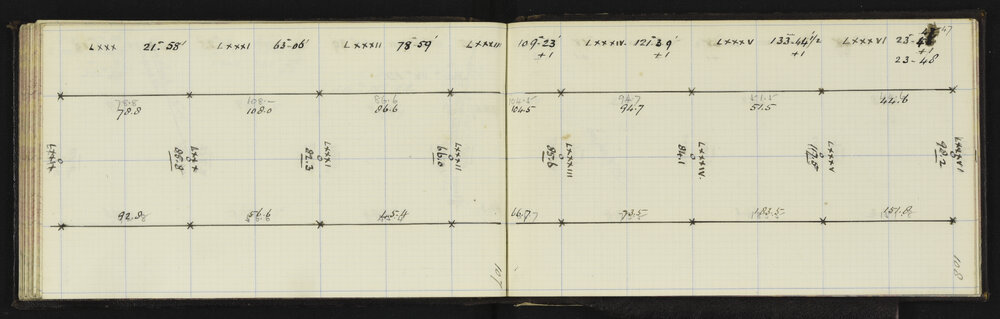 LXXX 21°-58' LXXXI 65-06' LXXXII 78-59' LXXXIII 109-23' LXXXIV. 121-39' LXXXV 133-44½ LXXXVI 23-
+1 +1 +1 +1
23-48
78.8 108.0 86.6 104.5 94.7 51.5 44.6
LXXX 0 88.8 LXXXI 0 82.3 LXXXII 0 66.0 LXXXIII 0 85.6 LXXXIV. 0 84.1 LXXXV 0 112.8 LXXXVI 0 98.2
92.8 56.6 45.4 16.7 73.5 183.5 151.8
107 108